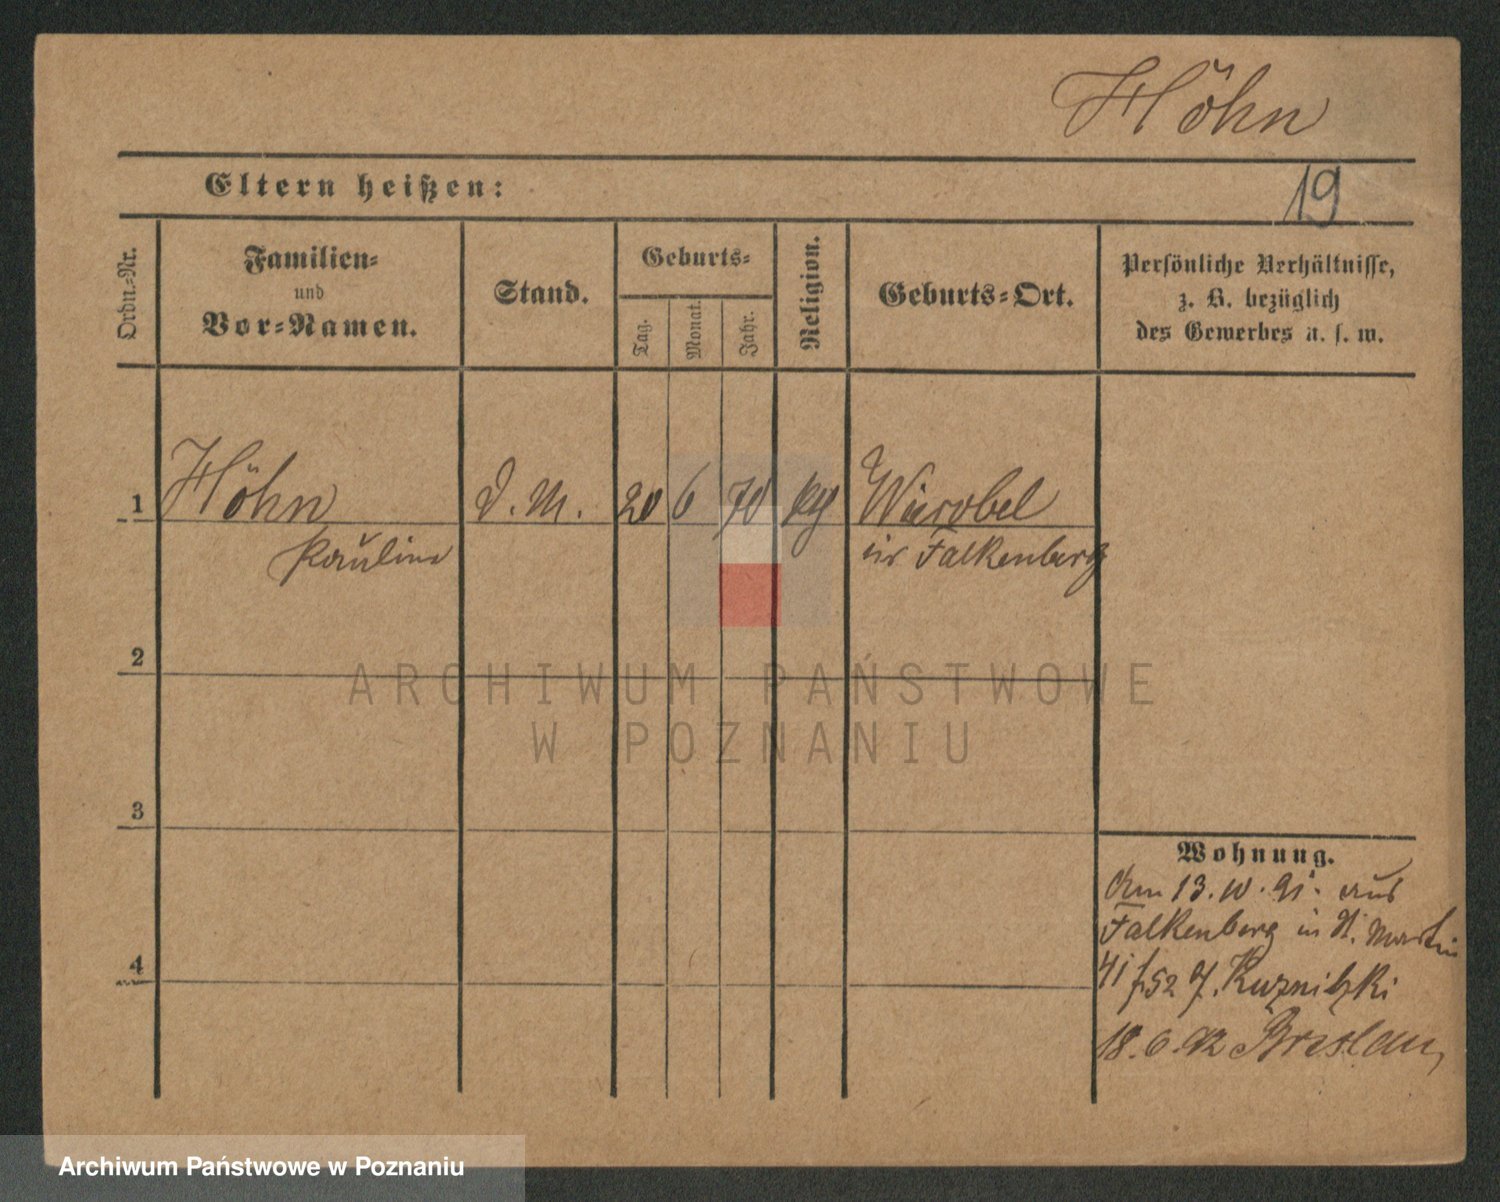 Höhn
Eltern heißen:
19
Ordn.-Nr.
Familien-
und
Vor-Namen.
Stand.
Geburts-
Tag.
Monat.
Jahr.
Religion.
Geburts-Ort.
Persönliche Verhältnisse,
z. B. bezüglich
des Gewerbes u. s. w.
1
Höhn
Pauline
d. M.
20
6
70
Wurobel
in Falkenberg
2
3
4
Wohnung.
13. 10. 91. aus
Falkenberg in St. Martin
41 7. Kuznitzki
18. 6. 92 Breslau
ARCHIWUM PAŃSTWOWE
W POZNANIU
Archiwum Państwowe w Poznaniu